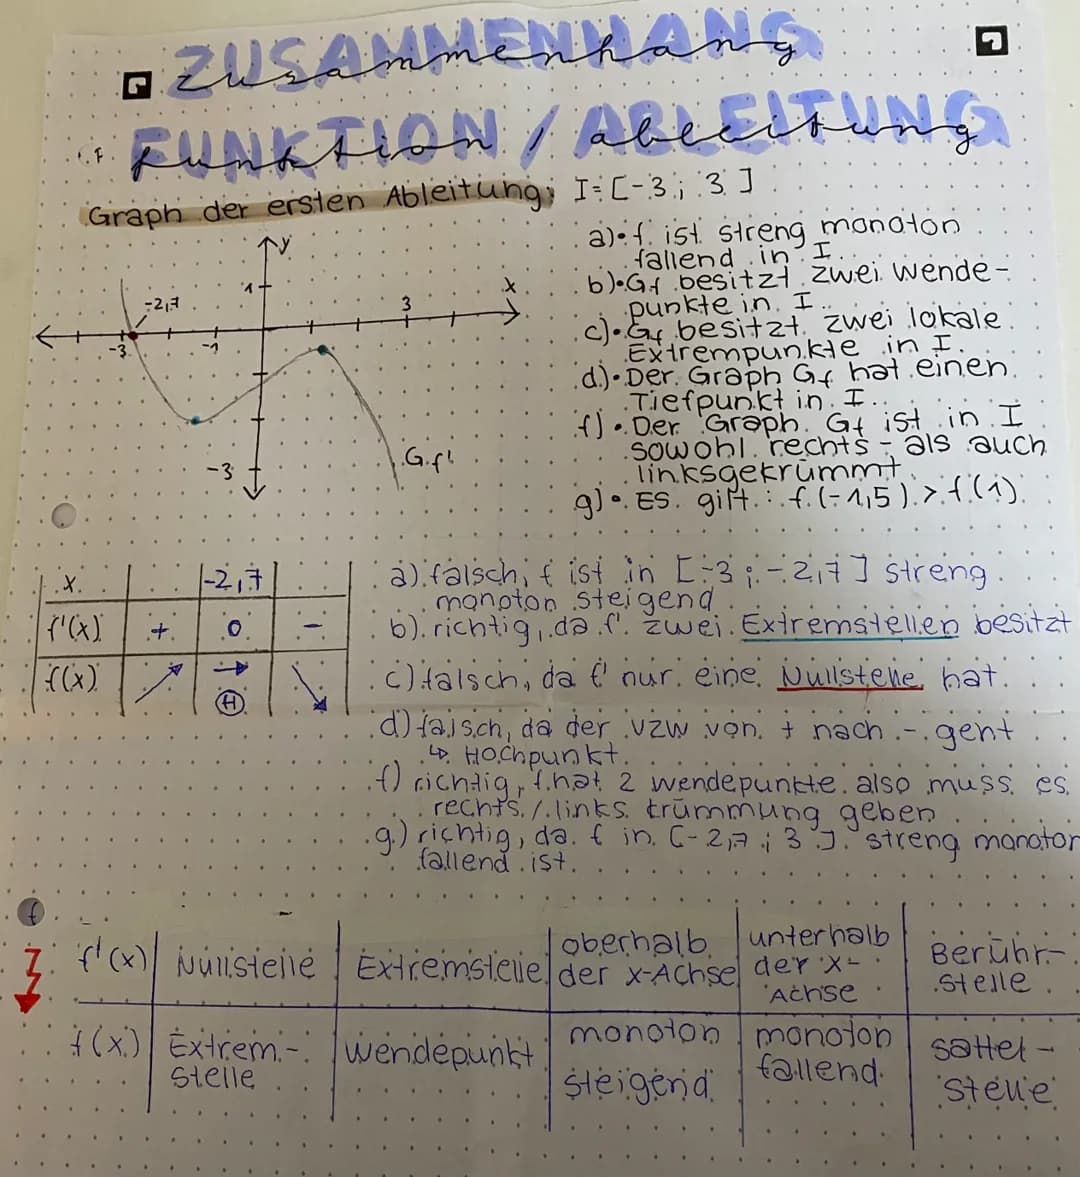 ZUSAMMENHANG
zusammenhang
FUNKTION / ABLEITUNG
funktion / ableitung
Graph der ersten Ableitung: I=[-3; 3]
y
1
-2,7
3
x
-3
-1
-3
Gf'
a)• f ist streng monoton
fallend in I.
b)•Gf besitzt zwei Wende-
punkte in I.
c)•Gf besitzt zwei lokale
Extrempunkte in I.
d)•Der Graph Gf hat einen
Tiefpunkt in I.
f)•Der Graph Gf ist in I
sowohl rechts - als auch
linksgekrümmt.
g)• ES gilt: f(-1,5) > f(1)
x -2,7
f'(x) + 0 -
f(x)
H
a) falsch, f ist in [-3; -2,7] streng
monoton steigend
b) richtig, da f' zwei Extremstellen besitzt
c) falsch, da f' nur eine Nullstelle hat.
d) falsch, da der VZW von + nach - geht
↳ Hochpunkt.
f) richtig, f hat 2 wendepunkte also muss es
rechts / links krümmung geben
g) richtig, da f in [-2,7; 3] streng monoton
fallend ist.
f
f'(x) Nullstelle Extremstelle oberhalb der x-Achse unterhalb der x-Achse Berühr-stelle
f(x) Extrem-stelle wendepunkt monoton steigend monoton fallend Sattel-stelle